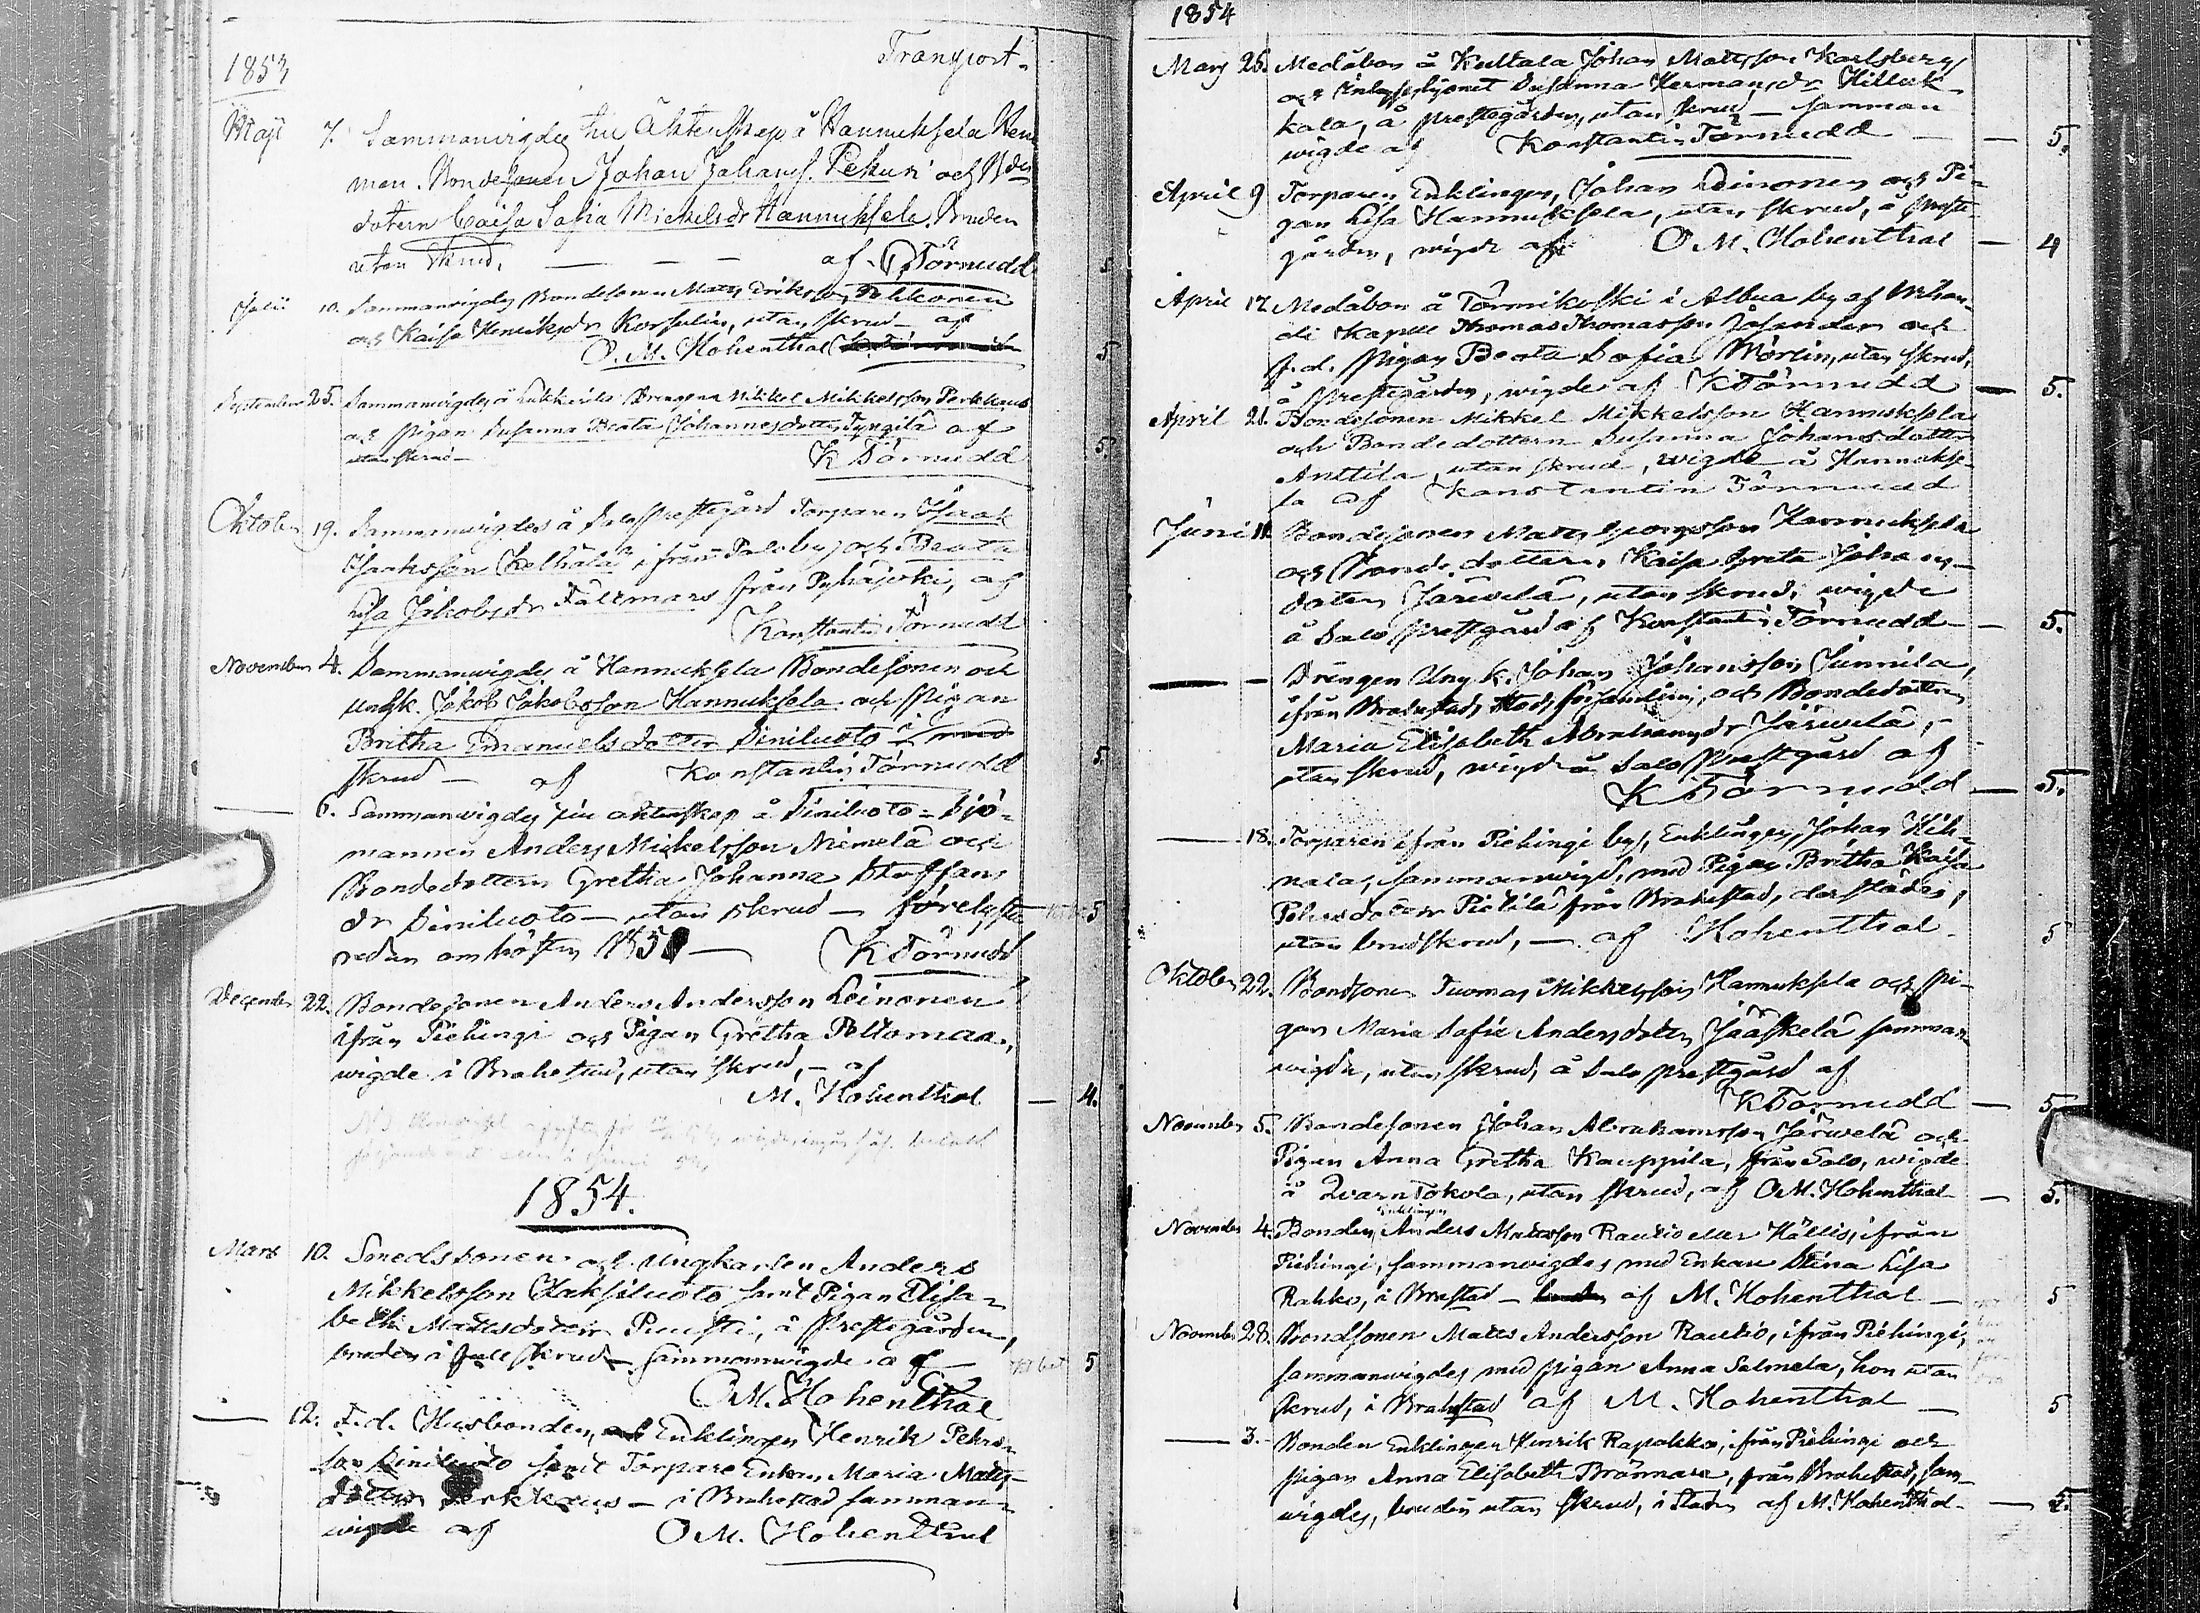 1853
Transport.
Maji 7. Sammanvigdes till Äktenskap å Hannuksela Hem
man. Bondesonen Johan Johans. Pekuri och Bde
dotern Caisa Sofia Mickelsdr Hannuksela. Bruden
utan skrud. — — — af Törnudd 5
Julii 10. Sammanvigdes Bondesonen Matts Eriksson
och Kaisa Henriksdr Korsulin, utan skrud — af
O. M. Hohenthal 5
September 25. Sammanvigdes å Drengen Mikkel Mikkelsson Perkkiö
och Pigan Susanna Beata Johannesdotter Tyngilä af
utan skrud — K Törnudd 5.
Oktober 19. Sammanvigdes å Salo Prestegård Torparen Isaak
Isaksson Kelhälä, från Palo by och Beata
Lisa Jakobsdr Fältmars från Pyhäjoki, af
Konstantin Törnudd
November 4. Sammanvigdes å Hannuksela Bondesonen och
ungk. Jakob Jakobsson Hannuksela och Pigan
Britha Emanuels dotter Siniluoto i
skrud — af Konstantin Törnudd 5
— 6. Sammanvigdes till äktenskap å Siniluoto — Sjö-
mannen Anders Mickelsson Niemelä och
Bondedottern Gretha Johanna Staffans
dr Siniluoto — utan skrud — förelyste 5
redan om hösten 185 — K Törnudd
December 22. Bondesonen Anders Andersson Leinonen
ifrån Piehingi och Pigan Gretha Poltomaa,
wigde i Brahestad, utan skrud, — af
M. Hohenthal — 4.
1854.
Mars 10. Smedssonen och Ungkarlen Anders
Mikkelsson Haksiluoto samt Pigan Elisa-
beth Mattsdoter Puusti, å Prestegården,
bruden i full skrud — sammanwigde af — 5
O M. Hohenthal
— 12. F.d. Husbonden, Enklingen Henrik Pehrs-
son Siniluoto samt Torpare Enkan Maria Matts-
dotter Perkkiäus — i Brahestad samman-
wigde af O M. Hohenthal
1854
Mars 25. Medåbon å Kultala Johan Mattsson Karlsberg
och Susanna Hermansdr Hilluk-
kala, å Prestegården, utan skrud — samman
wigde af Konstantin Törnudd — 5.
April 9 Torparen Enklingen, Johan Leinonen och Pi-
gan Lisa Hannuksela, utan skrud, å Preste
gården, wigde af O M. Hohenthal — 4
April 17. Medåbon å Törmikoski i Albua by af Wihan-
di Kapell Thomas Thomasson Josander och
f.d. Pigan Beata Sofia Mörlin, utan skrud,
å Prestegården, wigde af K Törnudd — 5.
April 21. Bondesonen Mikkel Mikkelsson Hannuksela
och Bondedottern Susanna Johansdotter
Anttila, utan skrud, wigde å Hannukse-
la af Konstantin Törnudd
Juni 11. Bondesonen Matts Georgsson Hannuksela
och Bonde dottern, Kaisa Greta Johans-
doter Järwelä, utan skrud, wigde
å Salo Prestgård af Konstantin Törnudd — 5.
— — Drengen Ungk. Johan Johansson Junnila,
ifrån Brahestads Stads församling, och Bondedottern
Maria Elisabeth Abrahamsdr Järwelä, —
utan skrud, wigde å Salo Prestgård af
K Törnudd — 5.
— 18. Torparen ifrån Piehingi by, Enklingen, Johan Kih-
nala, sammanwigd, med Pigan Britha Kaisa
Pehrsdotter Pietilä från Brahestad, derstädes,
utan brudskrud, — af Hohenthal 5
Oktober 22. Bondsonen Tuomas Mikkelsson Hannuksela och Pi-
gan Maria Sofia Andersdoter Jääskelä samman
wigde, utan skrud, å Salo Prestgård af
K Törnudd — 5
November 5. Bondesonen Johan Abrahamsson Järwelä och
Pigan Anna Gretha Kauppila, från Salo, wigde
å Qvarn Tokola, utan skrud, af OM. Hohenthal — 5.
Enklingen
November 4. Bonden Anders Mattsson Rautio eller Källio, ifrån
Piehingi, sammanwigdes med Enkan Stina Lisa
Rahko, i Brastad — af M. Hohenthal — 5
November 28. Bondsonen Matts Andersson Rautio, ifrån Piehingi,
sammanwigdes med Pigan Anna Salmela, hon utan
skrud, i Brahestad af M. Hohenthal — 5
— 3. — Bonden Enklingen Henrik Rapakko, ifrån Piehingi och
Pigan Anna Elisabeth Brännare, från Brahestad, sam-
wigdes, bruden utan skrud, i Staden af M. Hohenthal — 5.